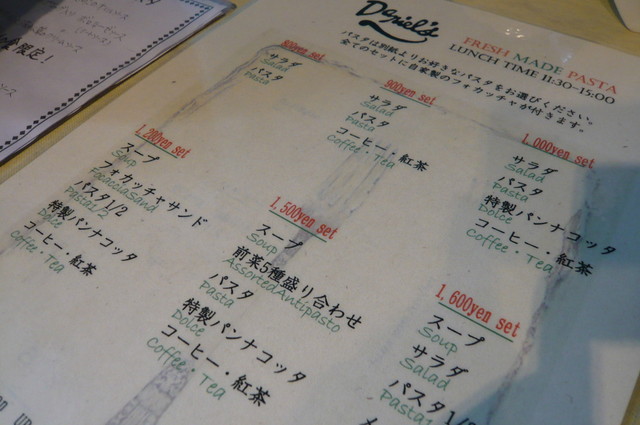 Daniel's
FRESH MADE PASTA
LUNCH TIME 11:30-15:00
パスタは別紙よりお好きなパスタをお選びください。
全てのセットに自家製のフォカッチャが付きます。
800yen set
サラダ
Salad
パスタ
Pasta
900yen set
サラダ
Salad
パスタ
Pasta
コーヒー・紅茶
Coffee・Tea
1,000yen set
サラダ
Salad
パスタ
Pasta
特製パンナコッタ
Dolce
コーヒー・紅茶
Coffee・Tea
1,200yen set
スープ
Soup
フォカッチャサンド
FocacciaSand
パスタ1/2
Pasta1/2
特製パンナコッタ
Dolce
コーヒー・紅茶
Coffee・Tea
1,500yen set
スープ
Soup
前菜5種盛り合わせ
AssortedAntipasto
パスタ
Pasta
特製パンナコッタ
Dolce
コーヒー・紅茶
Coffee・Tea
1,600yen set
スープ
Soup
サラダ
Salad
パスタ1/2
Pasta1
限定!